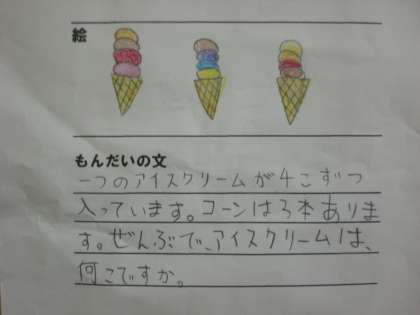 絵
もんだいの文
一つのアイスクリームが4こずつ
入っています。コーンは3本ありま
す。ぜんぶで、アイスクリームは、
何こですか。